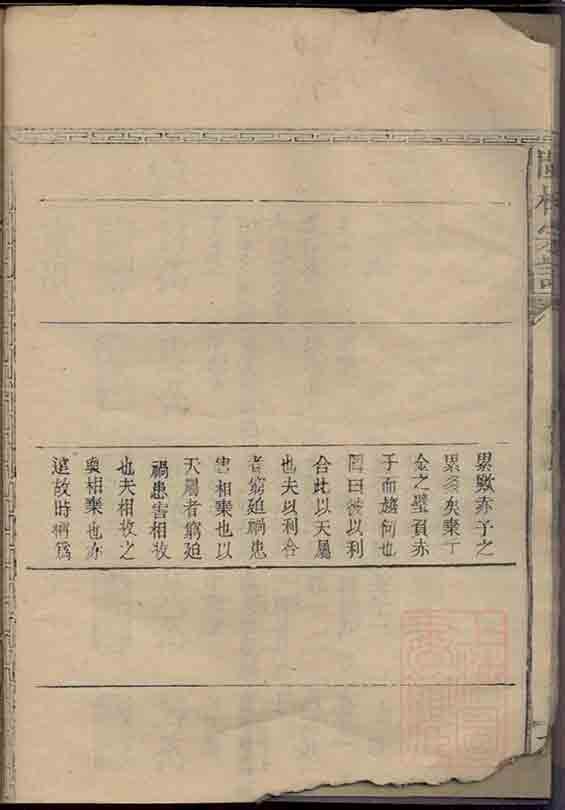 累歟赤子之
累多矣棄千
金之璧負赤
子而趨何也
回曰彼以利
合此以天屬
也夫以利合
者窮迫禍患
害相棄也以
天屬者窮迫
禍患害相收
也夫相收之
與相棄也亦
遠故時稱爲
林宗譜卷